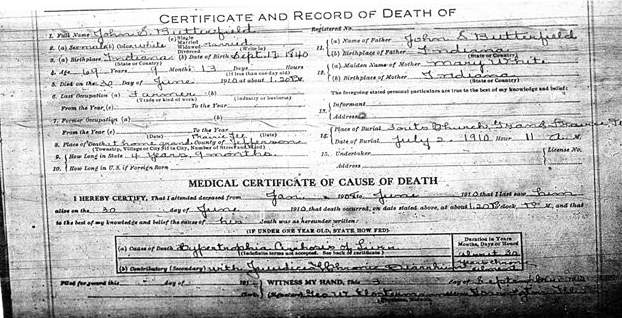 CERTIFICATE AND RECORD OF DEATH OF
1. Full Name John S. Butterfield Registered No.
2. (a) Sex male (b) Color White (c) Single Married Widowed Divorced married (Write in)
3. (a) Birthplace Indiana (b) Date of Birth Sept. 17 1840
(State or Country)
4. Age 69 Years 9 Months 13 Days Hours
(If less than one day old)
5. Died on the 30 Day of June 1910 at about 1.20 P.M.
6. Last Occupation (a) Farmer (b)
(Trade or kind of work) (Industry or business)
From the Year To the Year
7. Former Occupation (a) (b)
From the Year (Date) To the Year (Date)
8. Place of Death at home County of
(Township, Village or City; If in City, Number of Street and Ward)
9. How Long in State 4 Years 9 months.
10. How Long in U. S. if Foreign Born
11. (a) Name of Father John S Butterfield
(b) Birthplace of Father Indiana
(State or Country)
12. (a) Maiden Name of Mother Mary White
(b) Birthplace of Mother Indiana
(State or Country)
The foregoing stated personal particulars are true to the best of my knowledge and belief:
13. Informant
Address
14. Place of Burial South Church, Grand Prairie,
Date of Burial July 2, 1910, Hour 11 A.M.
15. Undertaker License No.
Address
MEDICAL CERTIFICATE OF CAUSE OF DEATH
I HEREBY CERTIFY, That I attended deceased from Jan 190 to June 1910 that I last saw him
alive on the 30 day of June 1910 that death occurred, on date stated above, at about 1.20 o'clock, P. M., and that
to the best of my knowledge and belief the cause of his death was as hereunder written:
(IF UNDER ONE YEAR OLD, STATE HOW FED)
(a) Cause of Death Hypertrophic Cirrhosis of Liver
(Indefinite terms not accepted. See back of certificate)
Duration in Years Months, Days or Hours
(b) Contributory (Secondary) with Jaundice & Chronic Diarrhoea
Filed for record this day of 191 WITNESS MY HAND, This day of
Clerk (Signature) Geo. W.